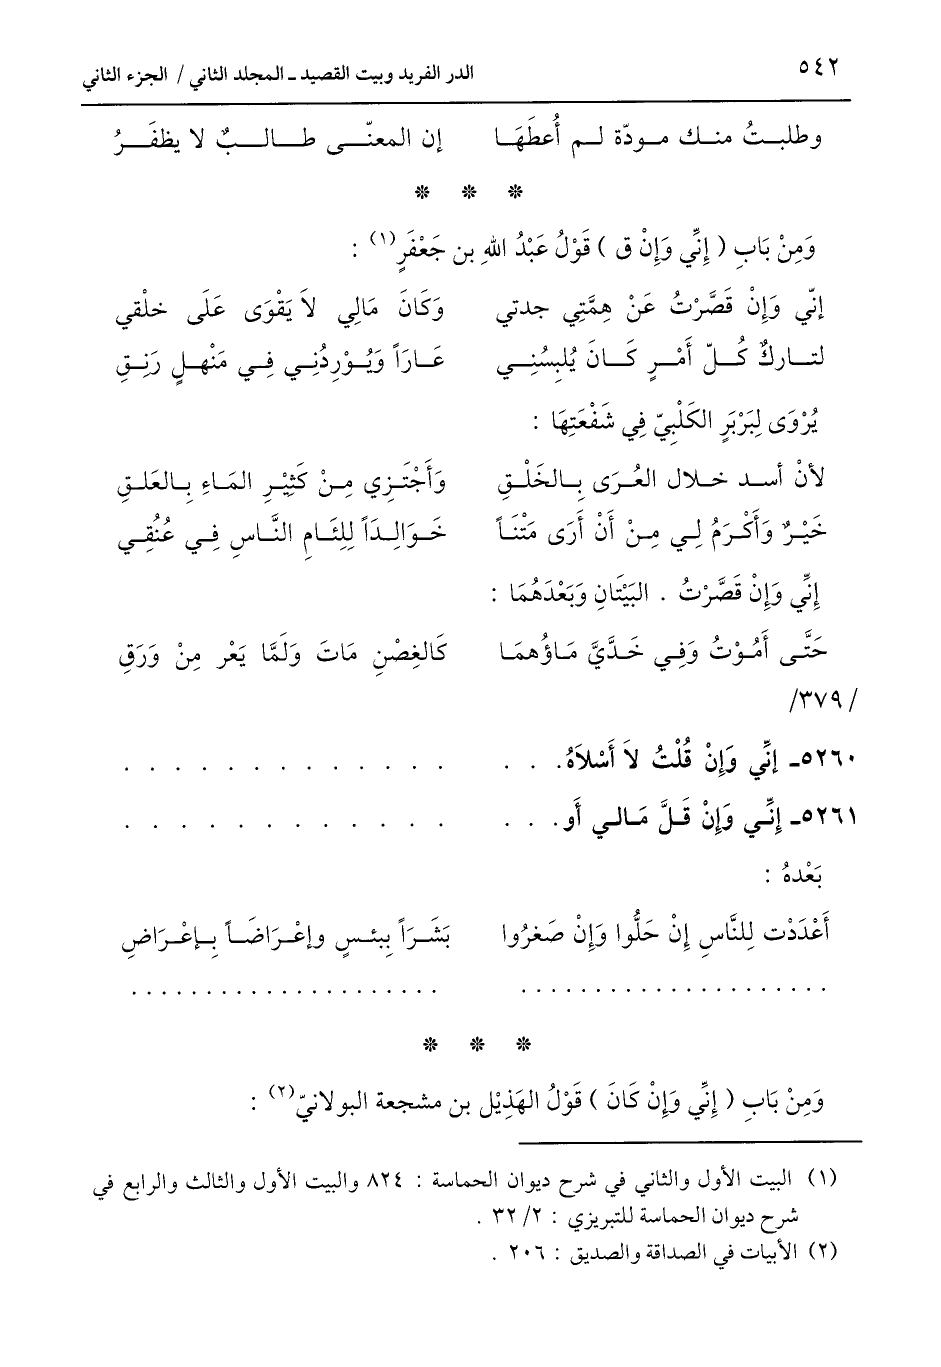 ٥٤٢ الدر الفريد وبيت القصيد ـ المجلد الثاني / الجزء الثاني
وطلبتُ منك مودّة لم أُعطَهَا إن المعنّى طالبٌ لا يظفَرُ
* * *
وَمِنْ بَابِ ( إِنِّي وَإِنْ ق ) قَوْلُ عَبْدُ اللهِ بن جَعْفَرٍ(١) :
إنّي وَإِنْ قَصَّرْتُ عَنْ هِمَّتِي جدتي وَكَانَ مَالِي لاَ يَقْوَى عَلَى خلْقي
لتاركٌ كُلّ أَمْرٍ كَانَ يُلبِسُنِي عَاراً وَيُوْردُنِي فِي مَنْهلٍ رَنِقِ
يُرْوَى لِبَرْبَرِ الكَلْبِيّ فِي شَفْعَتِهَا :
لأنْ أسد خلال العُرَى بالخَلْقِ وَأَجْتَزِي مِنْ كَثِيْرِ المَاءِ بِالعَلَقِ
خَيْرٌ وَأَكْرَمُ لِي مِنْ أَنْ أَرَى مَنَّاً خَوَالِدَاً لِلِئَامِ النَّاسِ فِي عُنُقِي
إِنِّي وَإِنْ قَصَّرْتُ . البَيْتَانِ وَبَعْدَهُمَا :
حَتَّى أَمُوْتُ وَفِي خَدَّيَّ مَاؤُهمَا كَالغِصْنِ مَاتَ وَلَمَّا يَعْر مِنْ وَرَقِ
/٣٧٩/
٥٢٦٠ـ إنِّي وَإِنْ قُلْتُ لاَ أَسْلاَهُ. . . . . . . . . . . . . . .
٥٢٦١ـ إِنِّي وَإِنْ قَلَّ مَالي أَو. . . . . . . . . . . . . . .
بَعْدهُ :
أَعْدَدْت لِلنَّاسِ إِنْ حَلُّوا وَإِنْ صَغرُوا بَشَراً ببئسٍ وإعْرَاضَاً بِإعْرَاضِ
. . . . . . . . . . . . . . . . . . . . . . . . . . . . . . . . . . . . . . . . . .
* * *
وَمِنْ بَابِ ( إِنِّي وَإِنْ كَانَ ) قَوْلُ الهَذِيْل بن مشجعة البولانيّ(٢) :
(١) البيت الأول والثاني في شرح ديوان الحماسة : ٨٢٤ والبيت الأول والثالث والرابع في
شرح ديوان الحماسة للتبريزي : ٢/ ٣٢ .
(٢) الأبيات في الصداقة والصديق : ٢٠٦ .